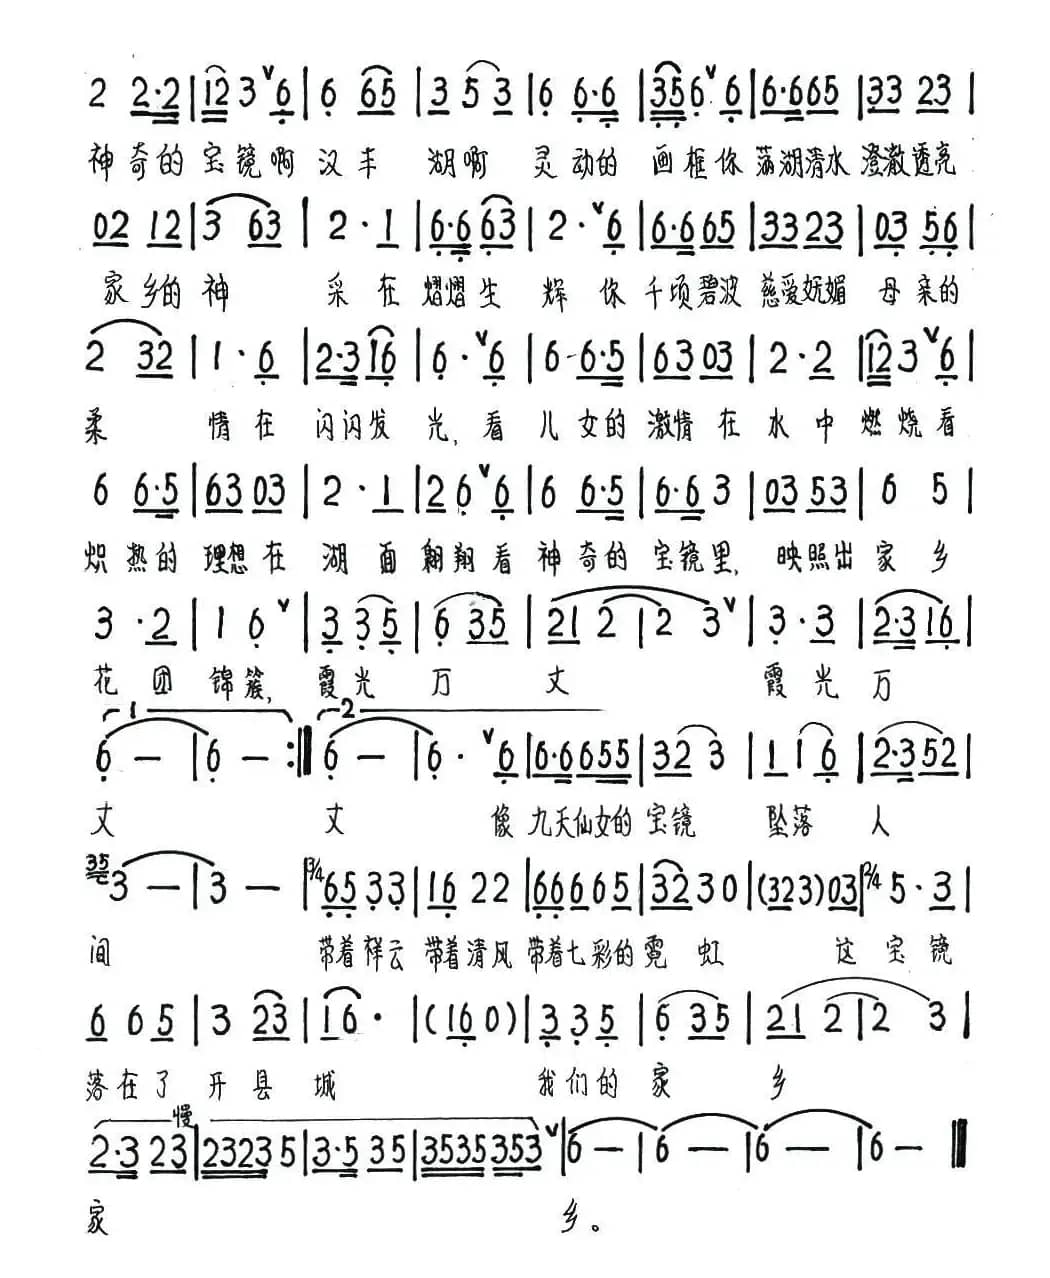 2 2·2 | 12 3 ∨ 6 | 6 65 | 3 5 3 | 6 6·6 | 35 6 ∨ 6 | 6·6 65 | 33 23 |
神奇的宝镜啊汉丰 湖啊 灵动的 画框你荡湖清水澄澈透亮
02 12 | 3 63 | 2·1 | 6·6 63 | 2·∨ 6 | 6·6 65 | 33 23 | 03 56 |
家乡的神 采在熠熠生 辉 你千顷碧波慈爱妩媚 母亲的
2 32 | 1·6 | 2·3 16 | 6·∨ 6 | 6-6·5 | 63 03 | 2·2 | 12 3 ∨ 6 |
柔 情在闪闪发 光,看儿女的激情在水中燃烧看
6 6·5 | 63 03 | 2·1 | 2 6 ∨ 6 | 6 6·5 | 6·6 3 | 03 53 | 6 5 |
炽热的理想在湖面翱翔看神奇的宝镜里,映照出家乡
3·2 | 1 6 ∨ | 3 3 5 | 6 35 | 21 2 | 2 3 ∨ | 3·3 | 2·3 16 |
花团锦簇,霞光万 丈 霞光万
1 2
6 — | 6 — :‖ 6 — | 6·∨ 6 | 6·6 655 | 32 3 | 1 1 6 | 2·3 52 |
丈 丈 像九天仙女的宝镜 坠落 人
35 3 — | 3 — | 3/4 65 3 3 | 16 2 2 | 66 6 65 | 32 3 0 | (323) 03 | 2/4 5·3 |
间 带着祥云带着清风带着七彩的霓虹 这宝镜
6 6 5 | 3 23 | 16· | (16 0) | 3 3 5 | 6 35 | 21 2 | 2 3 |
落在了开县城 我们的家 乡
慢
2·3 23 | 2323 5 | 3·5 35 | 3535 353 ∨ | 6 — | 6 — | 6 — | 6 — ‖
家 乡。